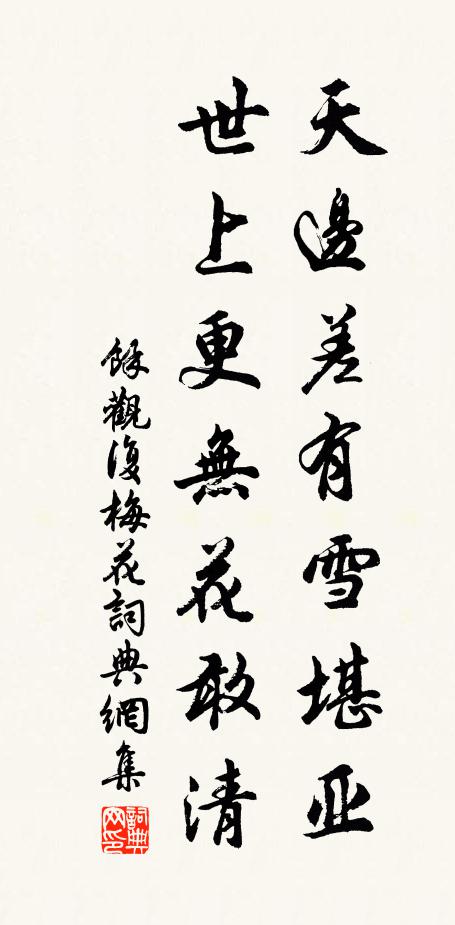 天邊差有雪堪亚
世上更無花敢清
餘觀復梅花詞典網集
詞典網印